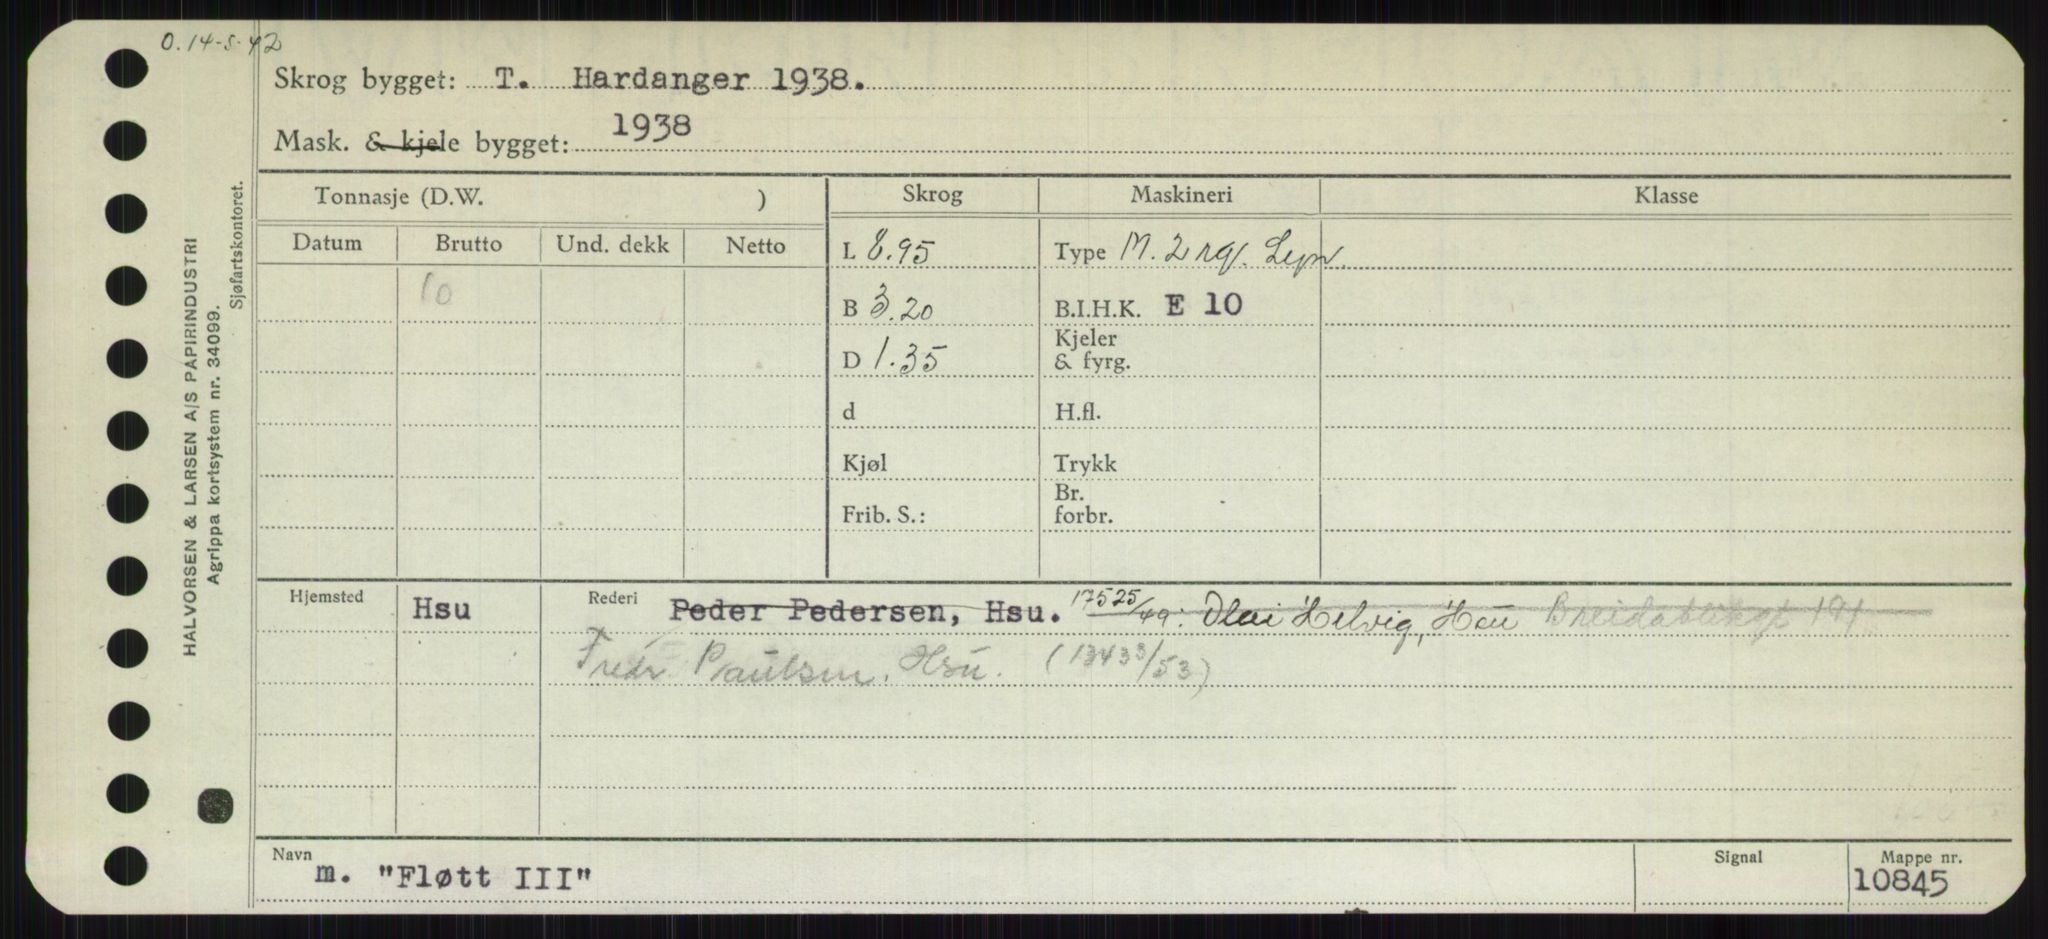 O. 14-5-42
Skrog bygget: T. Hardanger 1938.
Mask. & kjele bygget: 1938
HALVORSEN & LARSEN A/S PAPIRINDUSTRI
Agrippa kortsystem nr. 34099.
Sjøfartskontoret.
Tonnasje (D.W. ) Skrog Maskineri Klasse
Datum Brutto Und. dekk Netto
L 8.95 Type M. 2
10 B 3.20 B.I.H.K. E 10
D 1.35 Kjeler & fyrg.
d H.fl.
Kjøl Trykk
Frib. S.: Br. forbr.
Hjemsted Hsu Rederi Peder Pedersen, Hsu. 17525/49: Helvig, Hsu Breidablikgt 191
Fredr. Paulsen, Hsu. (13433/53)
Navn m. "Fløtt III" Signal Mappe nr. 10845